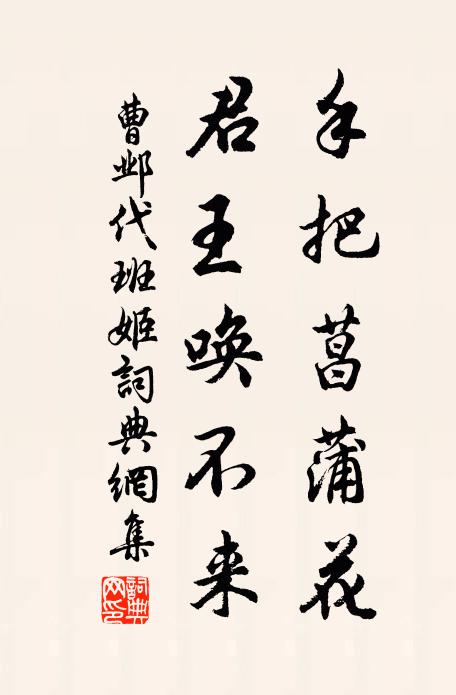 手把菖蒲花
君王唤不来
曹邺代班姬詞典網集
詞典网印